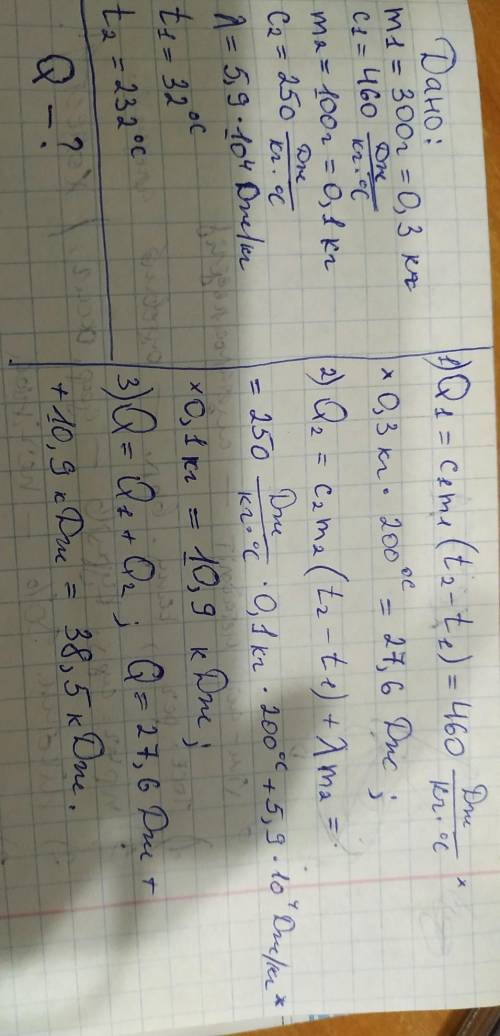 Дано:
m1 = 300г = 0,3 кг
c1 = 460 Дж/кг·°C
m2 = 100г = 0,1 кг
c2 = 250 Дж/кг·°C
λ = 5,9·10⁴ Дж/кг
t1 = 32°C
t2 = 232°C
Q – ?
1) Q1 = c1m1(t2 – t1) = 460 Дж/кг·°C ×
× 0,3 кг · 200°C = 27,6 Дж;
2) Q2 = c2m2(t2 – t1) + λm2 =
= 250 Дж/кг·°C · 0,1 кг · 200°C + 5,9·10⁴ Дж/кг ×
× 0,1 кг = 10,9 кДж;
3) Q = Q1 + Q2; Q = 27,6 Дж +
+ 10,9 кДж = 38,5 кДж.